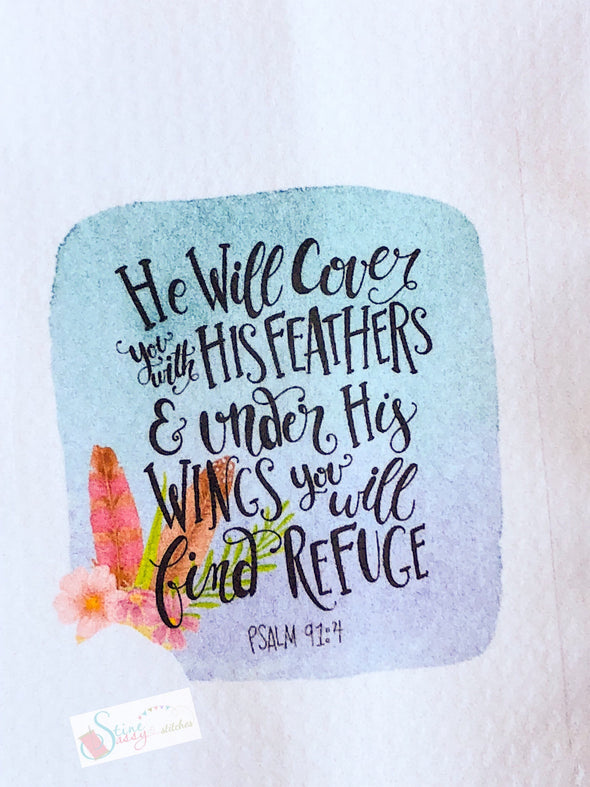 He Will Cover
you with HIS FEATHERS
& under His
WINGS you will
find REFUGE
PSALM 91:4
Stine
Sassy
stitches